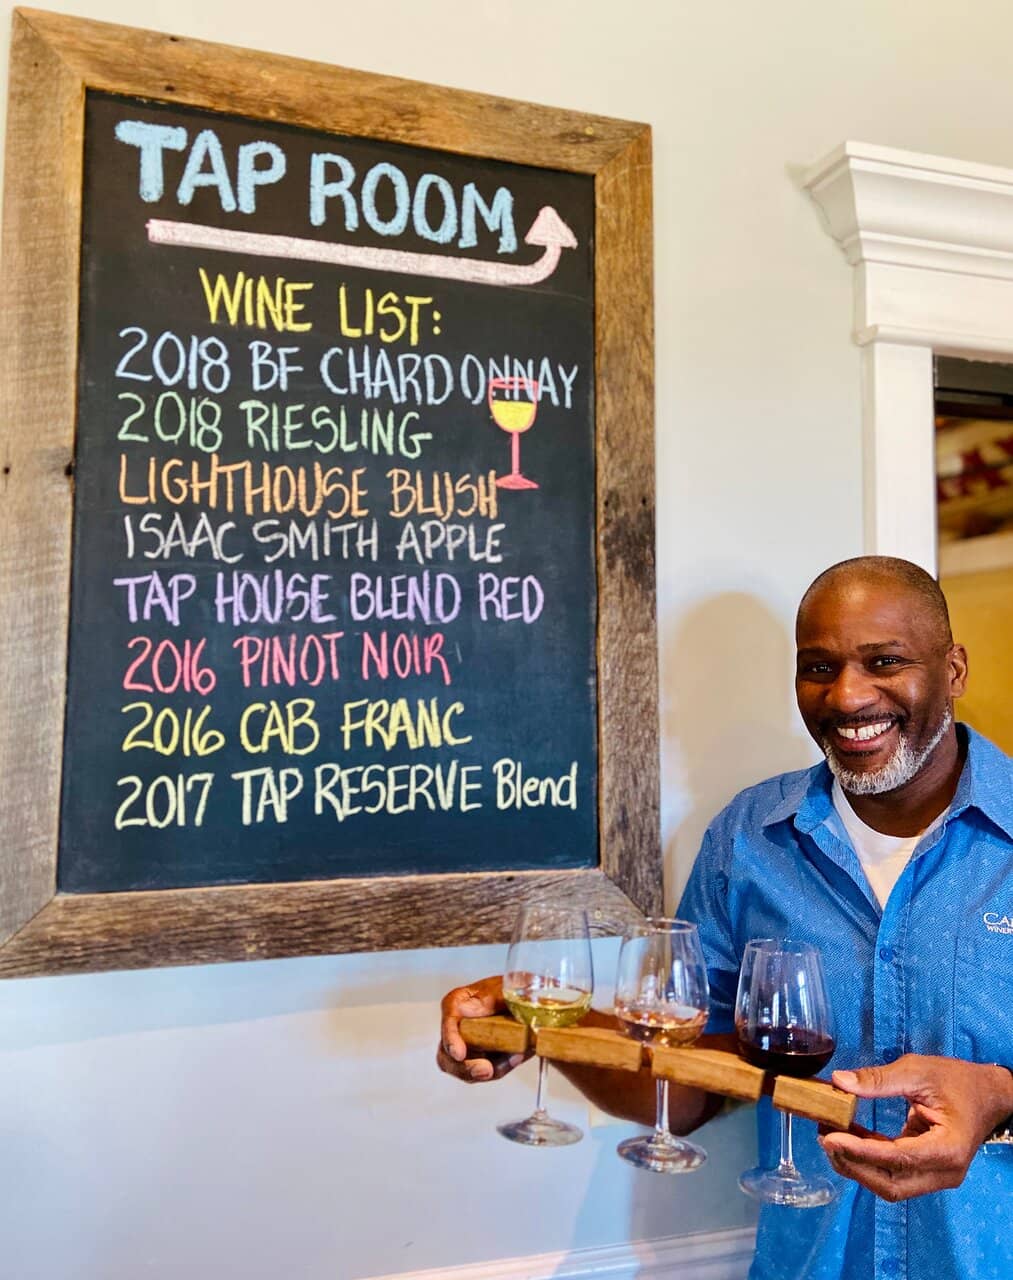 TAP ROOM
WINE LIST:
2018 BF CHARDONNAY
2018 RIESLING
LIGHTHOUSE BLUSH
ISAAC SMITH APPLE
TAP HOUSE BLEND RED
2016 PINOT NOIR
2016 CAB FRANC
2017 TAP RESERVE Blend